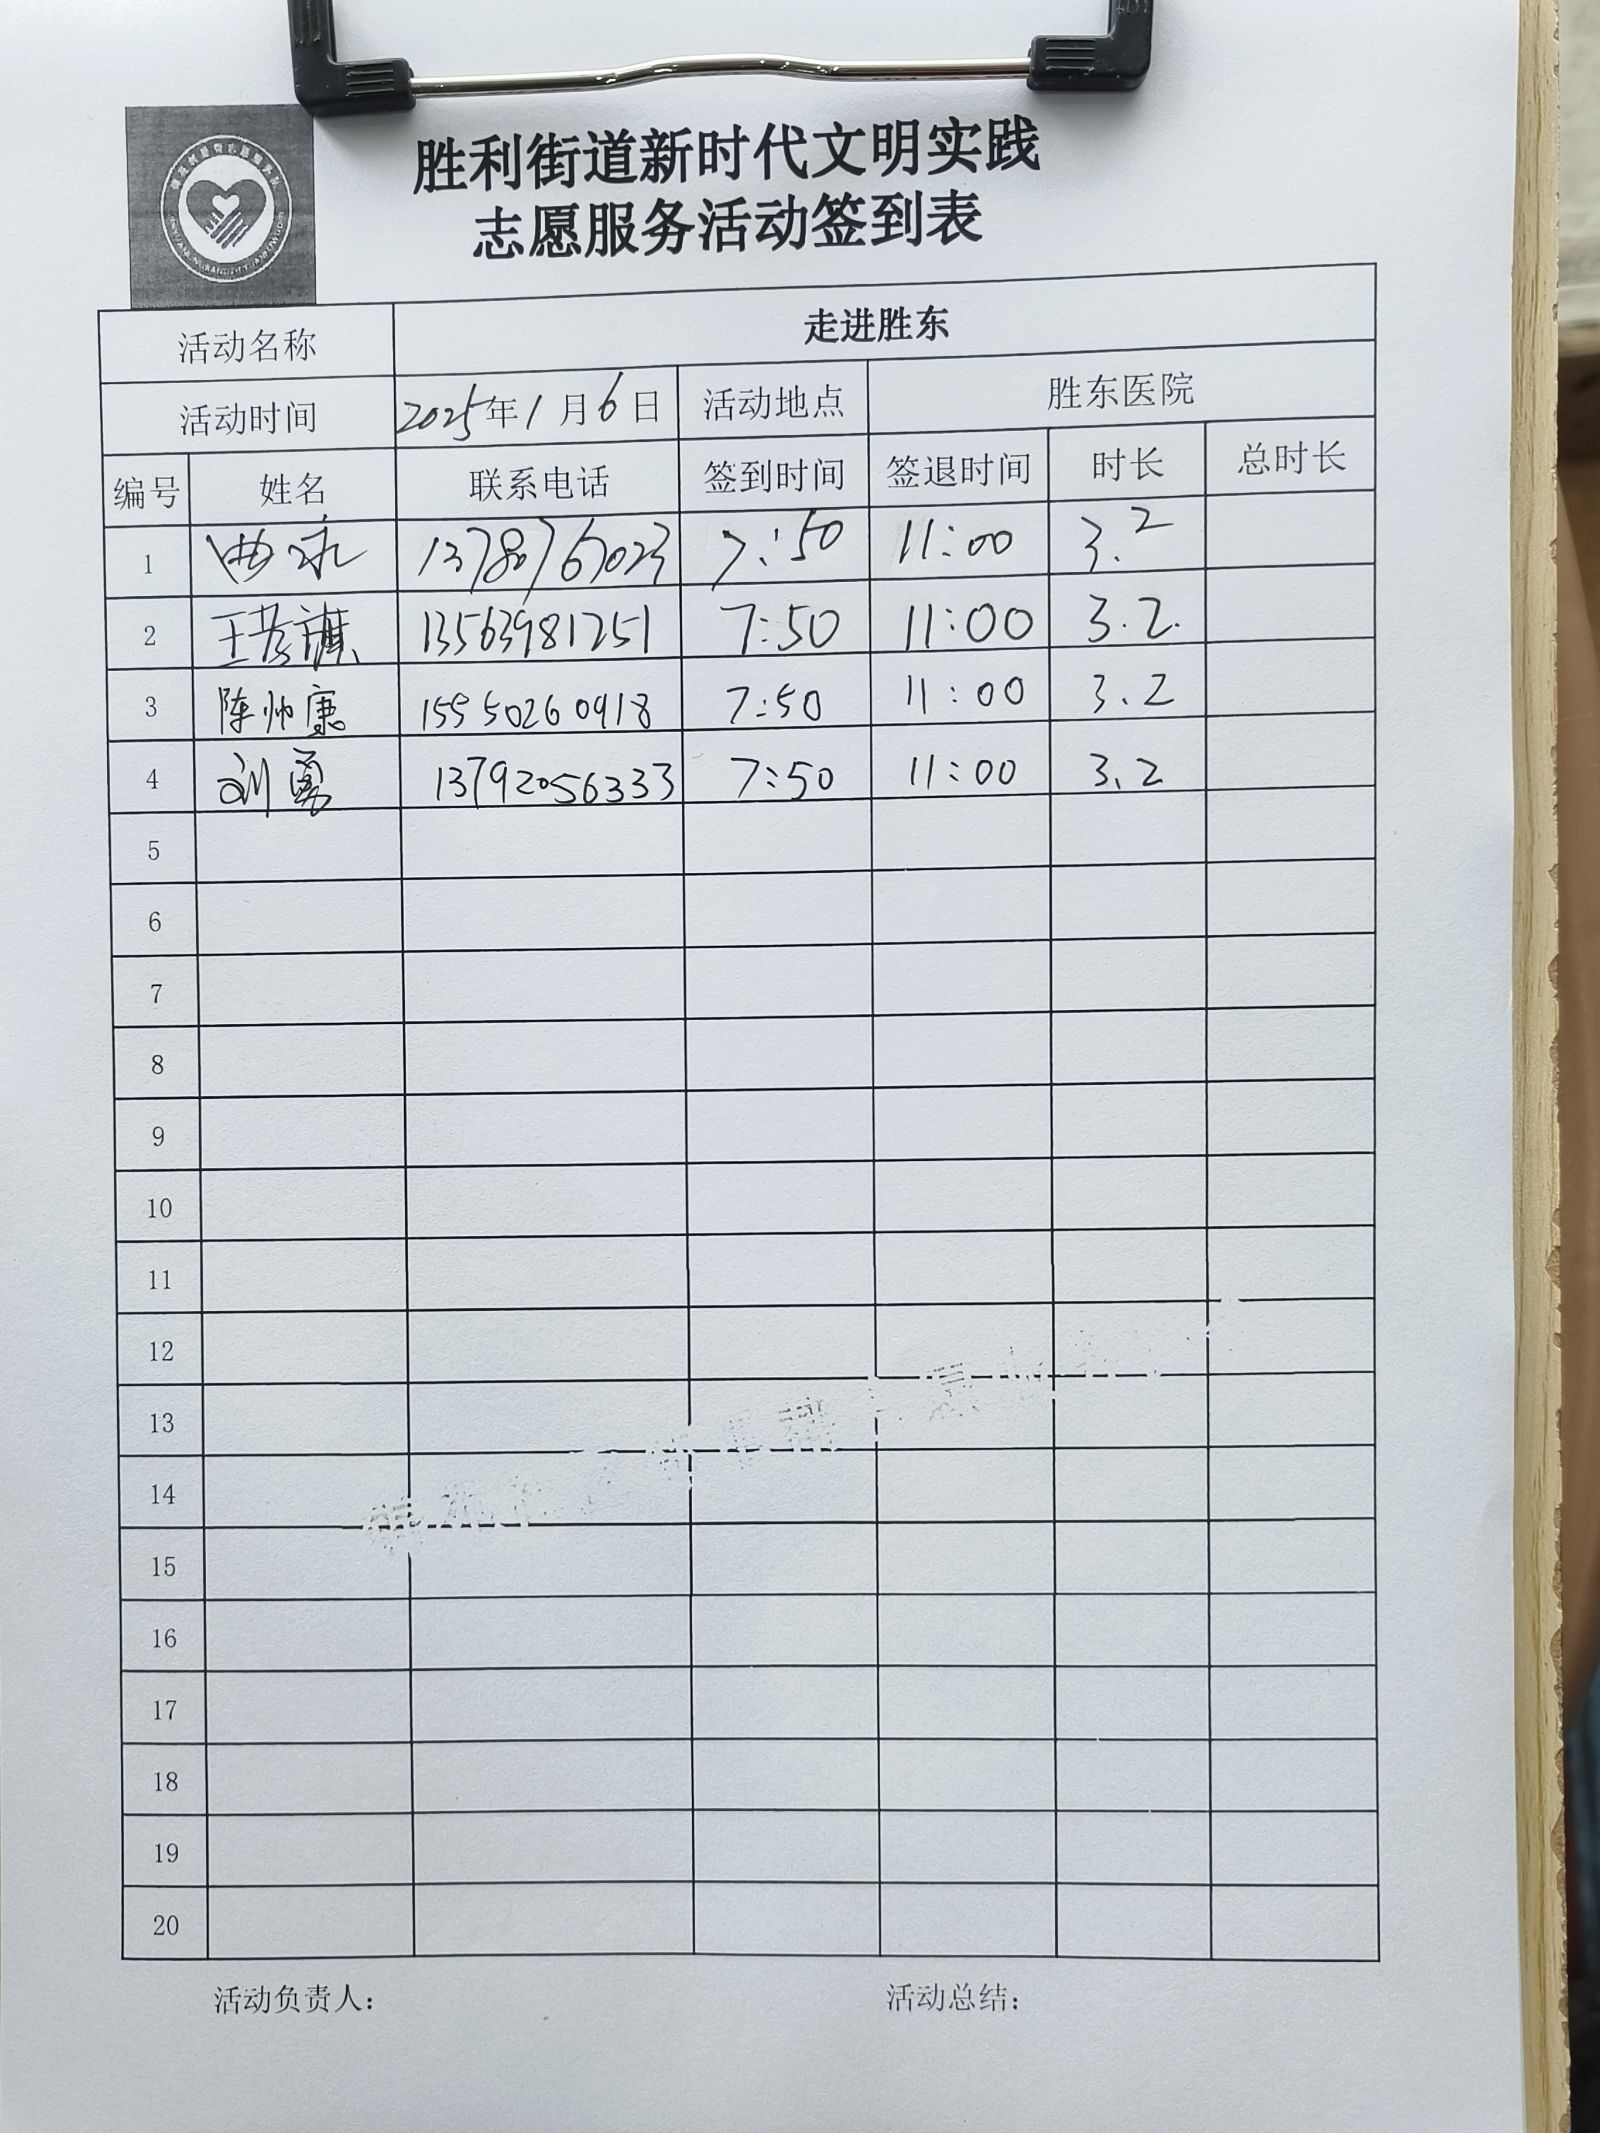 胜利街道新时代文明实践
志愿服务活动签到表
活动名称 走进胜东
活动时间 2025年1月6日 活动地点 胜东医院
编号 姓名 联系电话 签到时间 签退时间 时长 总时长
1 曲咏 13780767023 7:50 11:00 3.2
2 王彦祺 13563981251 7:50 11:00 3.2.
3 陈帅康 15550260918 7:50 11:00 3.2
4 刘勇 13792056333 7:50 11:00 3.2
5
6
7
8
9
10
11
12
13
14
15
16
17
18
19
20
活动负责人： 活动总结：